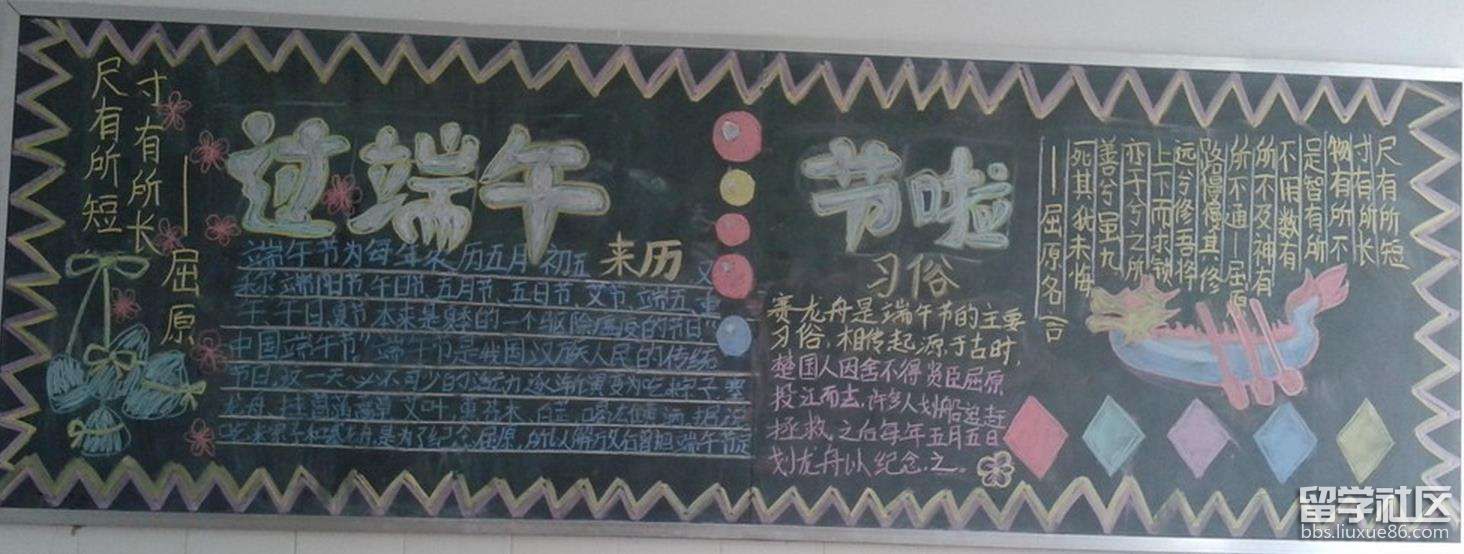 尺有所短
寸有所长
——屈原
过端午
节啦
来历
端午节为每年农历五月初五又
称端阳节、午日节、五月节、五日节、艾节、端五、重
午、午日、夏节、本来是夏的一个驱除瘟疫的节日
中国端午节"端午节是我国汉族人民的传统
节日，这一天必不可少的活动逐渐演变为吃粽子，赛
龙舟，挂菖蒲、蒿草、艾叶，薰苍术、白芷，喝雄黄酒，据说
吃粽子和赛龙舟，是为了纪念屈原，所以解放后曾把端午节定
习俗
赛龙舟是端午节的主要
习俗，相传起源于古时，
楚国人因舍不得贤臣屈原
投江而去，许多人划船追赶
拯救，之后每年五月五日
划龙舟以纪念之。
尺有所短
寸有所长
物有所不
足智有所
不明数有
所不及神有
所不通—屈原
路漫漫其修
远兮修吾将
上下而求锁
亦于兮之所
善兮虽九
死其我未悔
——屈原名言
留学社区
bbs.liuxue86.com